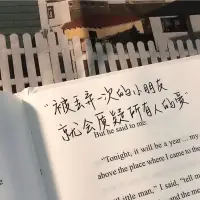 被丢弃一次的小朋友
就会质疑所有人的爱
But he said to me:
"Tonight, it will be a year... my
above the place where I came to the
"Little man," I said, "tell m